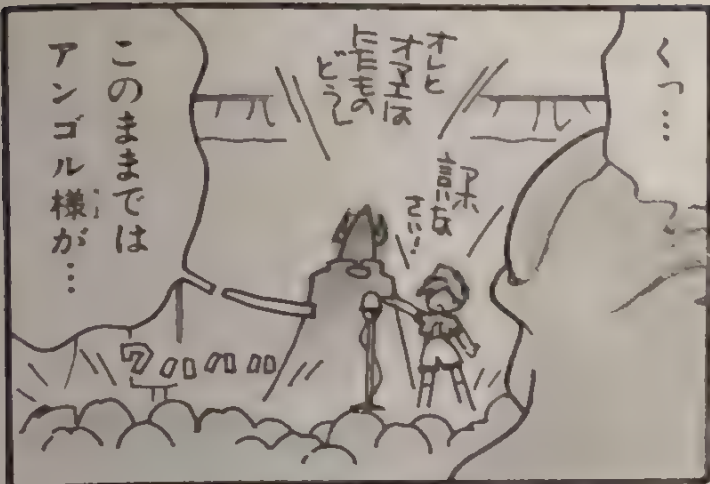 くっ…
オレと
オマエは
にたもの
どうし
アホ
言な
さい!
このままでは
アンゴル様が…